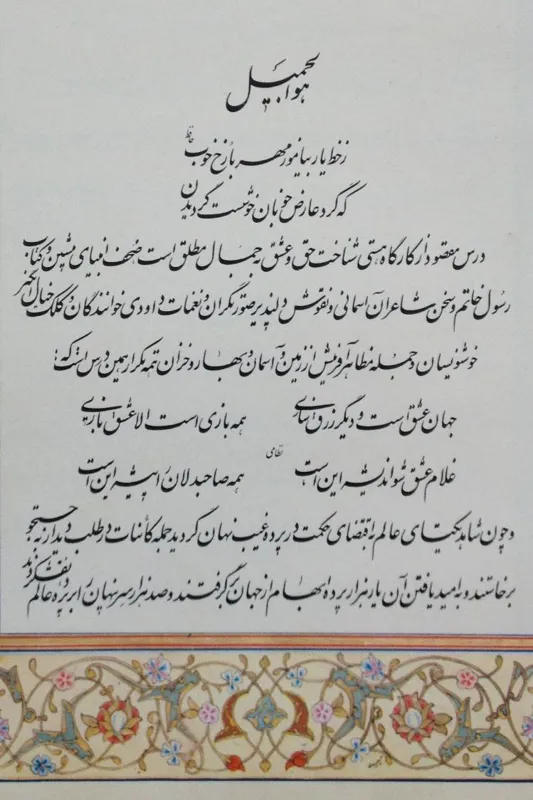 هوالجمیل
ز خط یار بیاموز مهر با رخ خوب
حافظ
که گرد عارض خوبان خوشست گردیدن
درس مقصود از کارگاه هستی شناخت حق و عشق جمال مطلق است صحف انبیای پیشین و کتاب
رسول خاتم و سخن شاعران آسمانی و نقوش دلپذیر صورتگران و نغمات داودی خوانندگان و کلک خیال انگیز
خوشنویسان و جمله مظاهر آفرینش از زمین و آسمان و بهار و خزان همه تکرار همین درس است که:
جهان عشق است و دیگر زرق سازی همه بازی است الا عشق بازی
نظامی
غلام عشق شو اندیشه این است همه صاحبدلان را پیشه این است
و چون شاهد یکتای عالم به اقتضای حکمت در پرده غیب نهان گردید جمله کائنات در طلب دیدار به جستجو
برخاستند و به امید یافتن آن یار هزار پرده ابهام از جهان برگرفتند و صد هزار سر نهان را بر پرده عالم